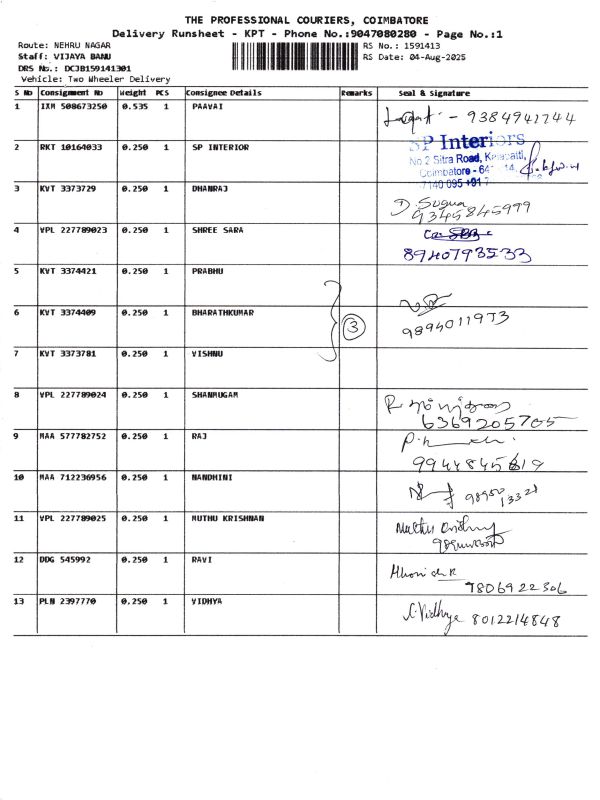 THE PROFESSIONAL COURIERS, COIMBATORE
Delivery Runsheet - KPT - Phone No.:9047080280 - Page No.:1
Route: NEHRU NAGAR
RS No.: 1591413
Staff: VIJAYA BANU
RS Date: 04-Aug-2025
DRS No.: DCJB159141301
Vehicle: Two Wheeler Delivery
S No Consignment No Weight PCS Consignee Details Remarks Seal & Signature
1 IXM 508673250 0.535 1 PAAVAI
- 9384941744
2 RKT 10164033 0.250 1 SP INTERIOR
SP Interiors
No 2 Sitra Road, Kalapatti,
Coimbatore - 64
3 KVT 3373729 0.250 1 DHANRAJ
D. Suguna
9345845999
4 VPL 227789023 0.250 1 SHREE SARA
8940793533
5 KVT 3374421 0.250 1 PRABHU
6 KVT 3374409 0.250 1 BHARATHKUMAR
3
9894011973
7 KVT 3373781 0.250 1 VISHNU
8 VPL 227789024 0.250 1 SHANMUGAM
6369205705
9 MAA 577782752 0.250 1 RAJ
9944845619
10 MAA 712236956 0.250 1 NANDHINI
11 VPL 227789025 0.250 1 MUTHU KRISHNAN
12 DDG 545992 0.250 1 RAVI
9806922306
13 PLN 2397770 0.250 1 VIDHYA
Vidhya 8012214848